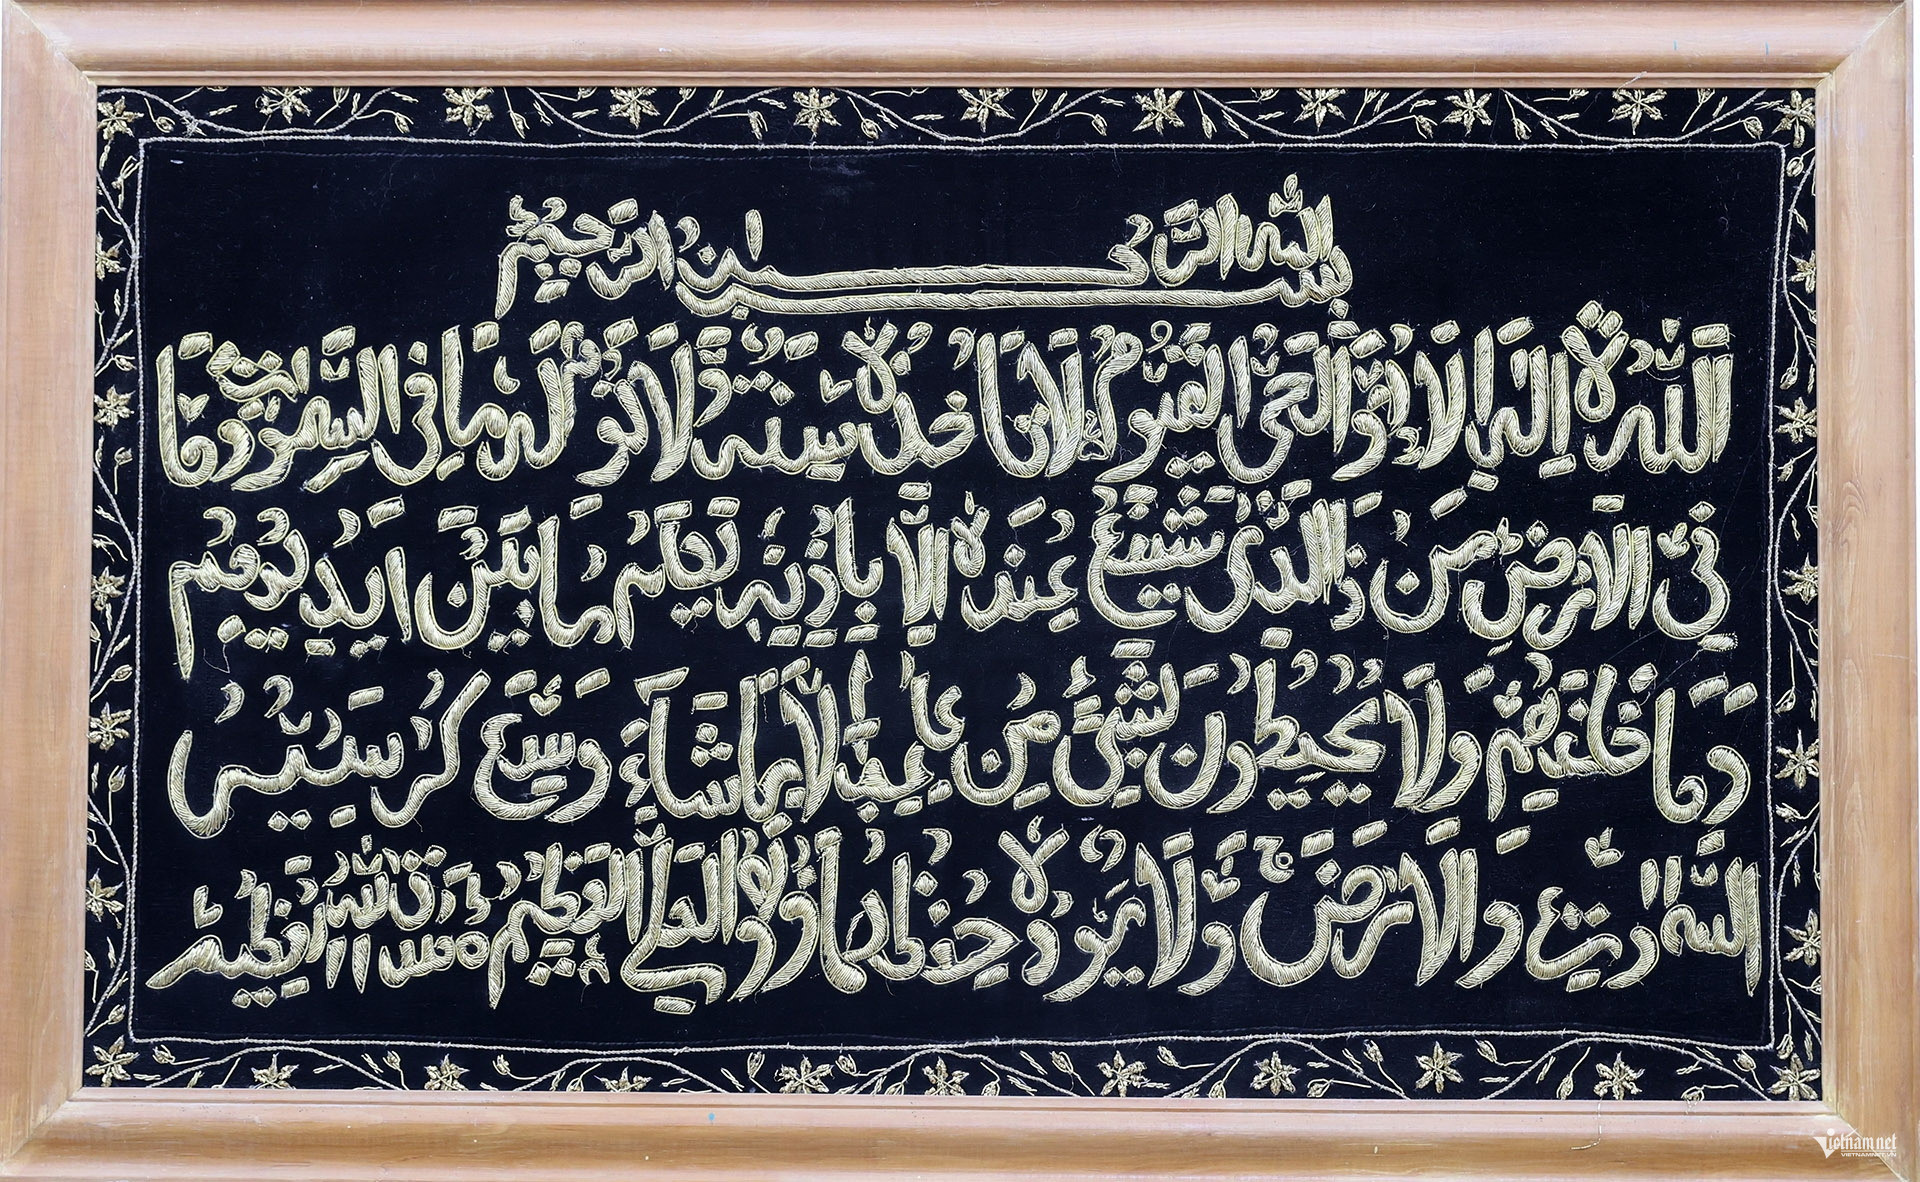 بسم الله الرحمن الرحيم
الله لا إله إلا هو الحي القيوم لا تاخذه سنة ولا نوم له ما في السموت وما
في الارض من ذا الذي يشفع عنده إلا باذنه يعلم ما بين ايديهم
وما خلفهم ولا يحيطون بشيء من علمه الا بما شاء وسع كرسيه
السموت والارض ولا يوده حفظهما وهو العلي العظيم
vietnamnet
VIETNAMNET.VN